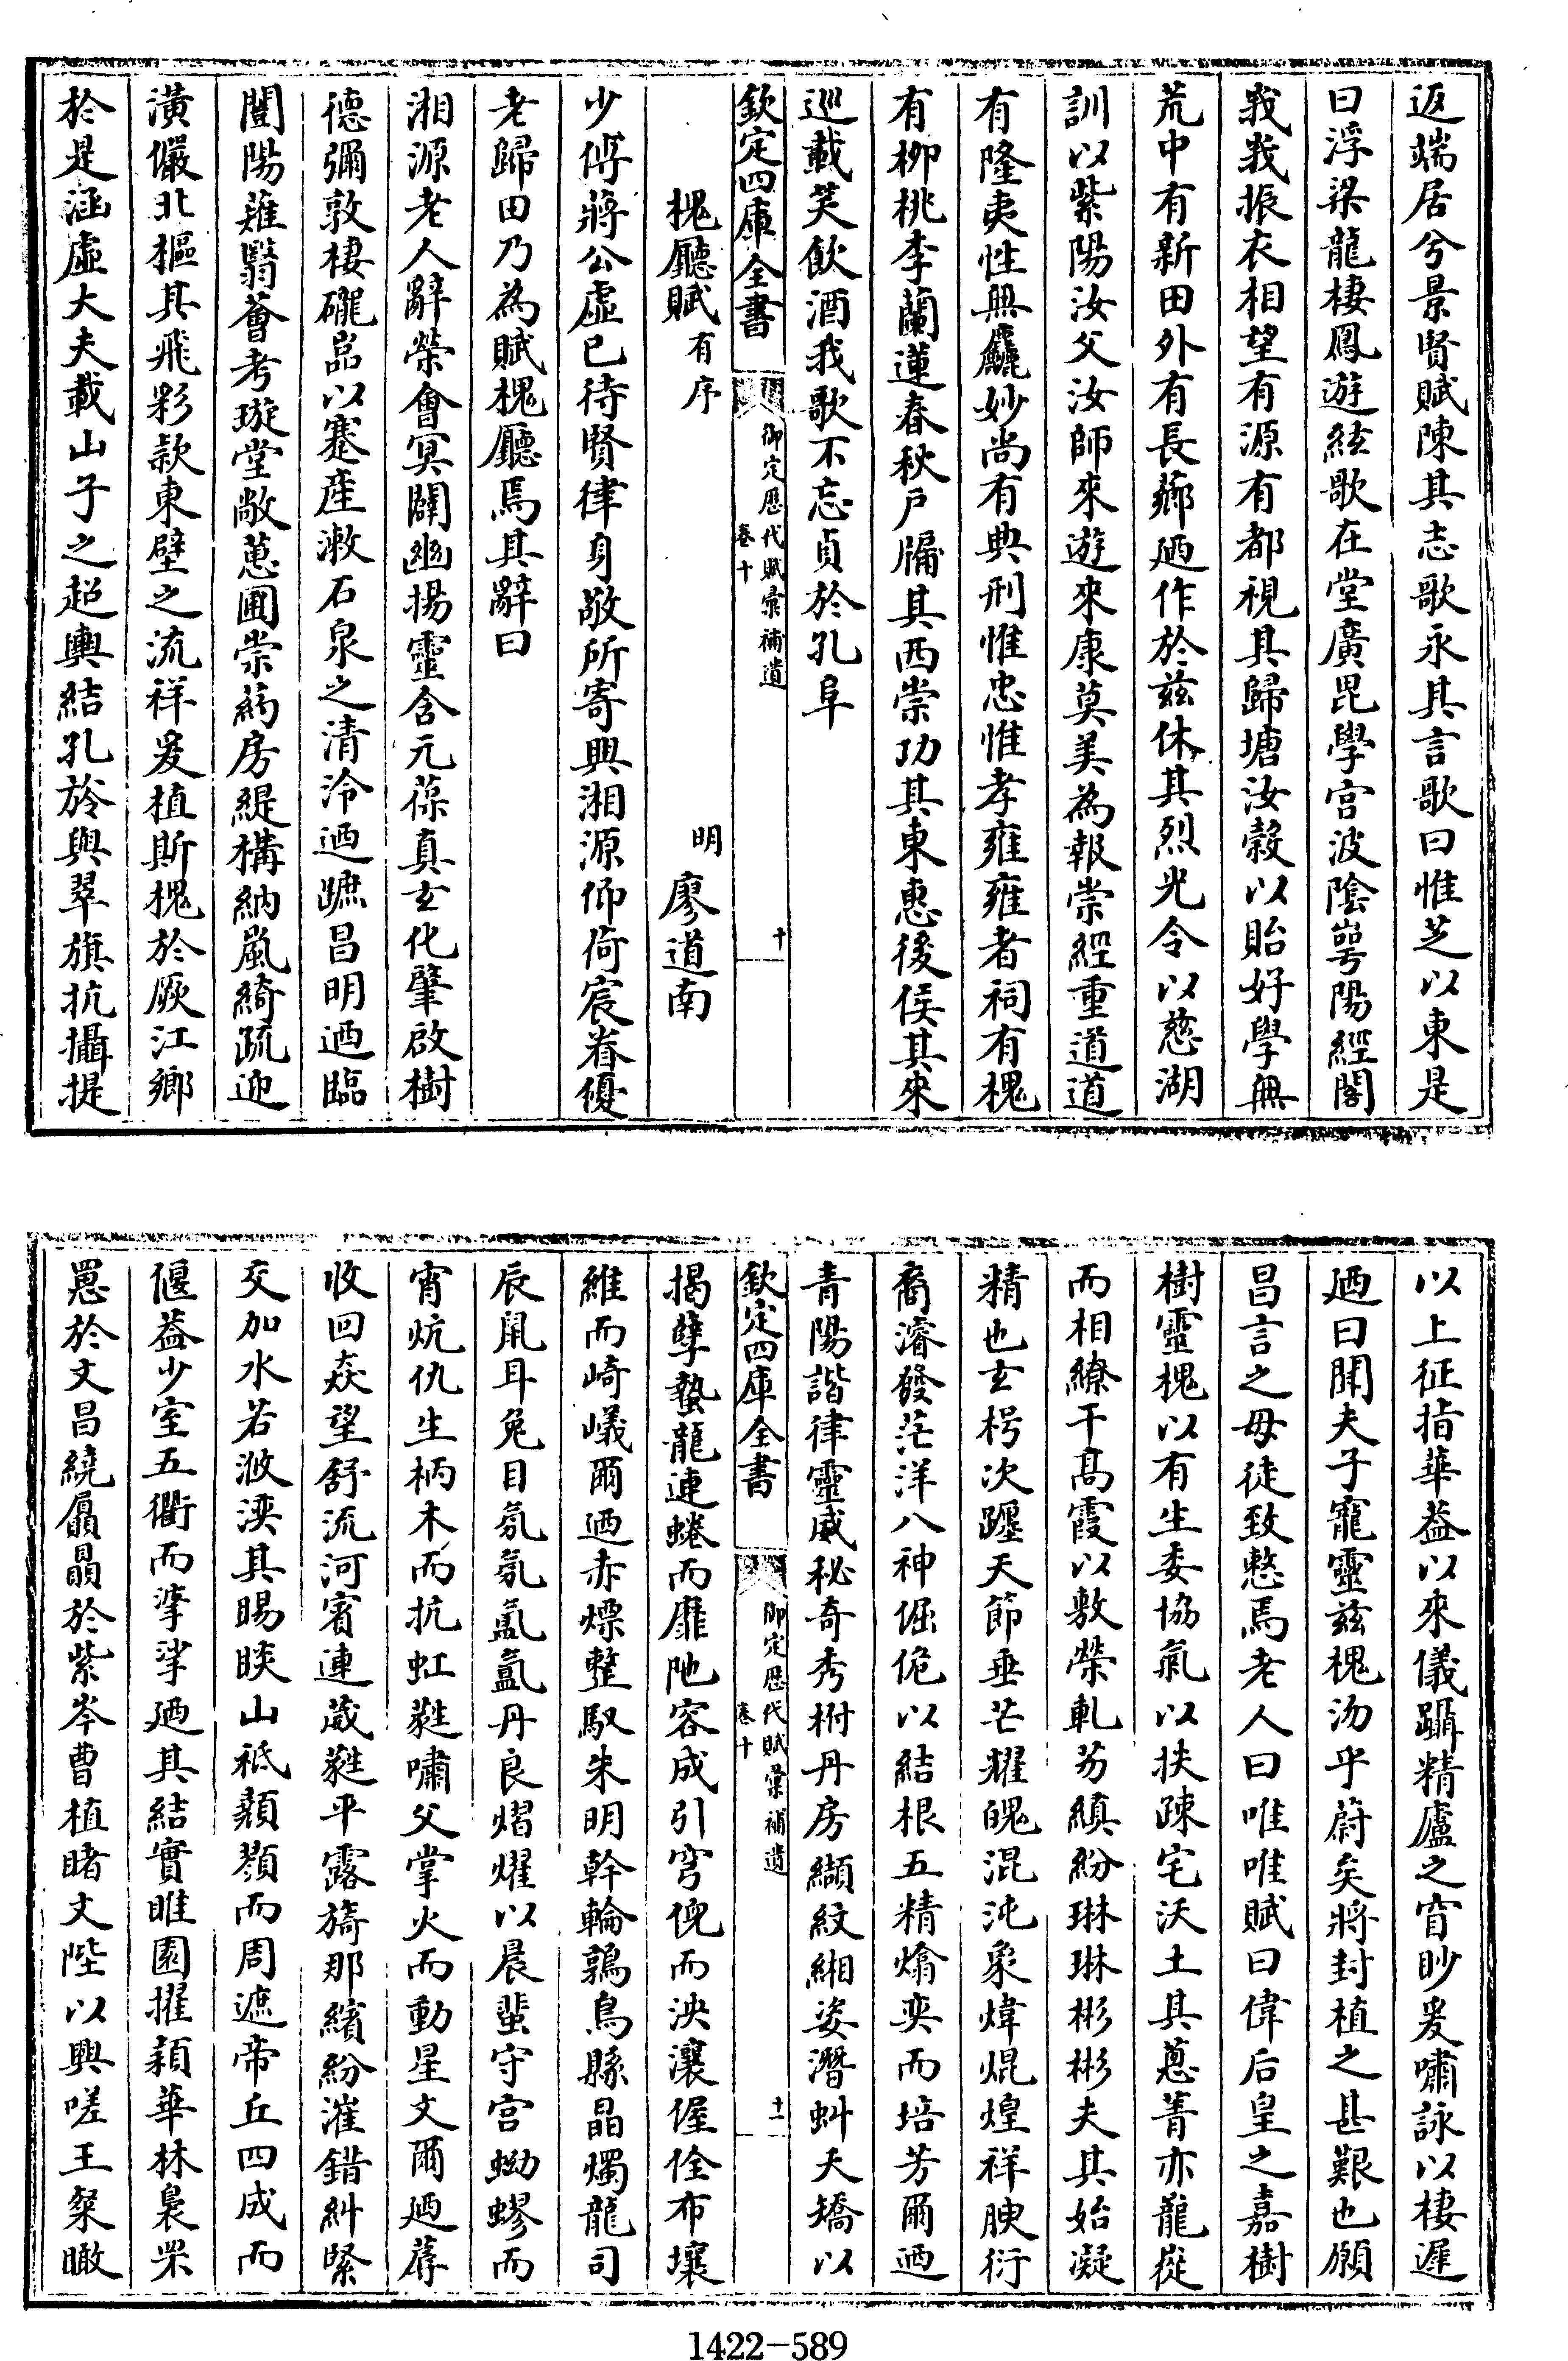 返端居兮景賢賦陳其志歌永其言歌曰惟芝以東是
曰浮梁龍棲鳳遊絃歌在堂廣毘學宮波陰崿陽經閣
峩峩振衣相望有源有都視其歸塘汝穀以貽好學無
荒中有新田外有長薌廼作於茲休其烈光令以慈湖
訓以紫陽汝父汝師來遊來康莫美為報崇經重道道
有隆夷性無麤妙尚有典刑惟忠惟孝雍雍者祠有槐
有柳桃李蘭蓮春秋戶牖其西崇功其東惠後侯其來
巡載笑飲酒我歌不忘貞於孔阜
欽定四庫全書
御定歷代賦彙補遺
卷十
十
槐廳賦有序
明 廖道南
少傅蔣公虛已待賢律身敬所寄興湘源仰倚宸眷優
老歸田乃為賦槐廳焉其辭曰
湘源老人辭榮會冥闢幽揚靈含元葆真玄化肇啟樹
德彌敦棲礲嵒以蹇產漱石泉之清泠迺蹠昌明迺臨
閶陽薙翳薈考璇堂敞蕙圃崇葯房緹構納嵐綺疏迎
潢儼北樞其飛彩款東壁之流祥爰植斯槐於厥江鄉
於是涵虛大夫載山子之超輿結孔旍與翠旗抗攝提
以上征指華蓋以來儀躡精廬之窅眇爰嘯詠以棲遲
廼曰聞夫子寵靈茲槐沕乎蔚矣將封植之甚艱也願
昌言之毋徒致慭焉老人曰唯唯賦曰偉后皇之嘉樹
樹靈槐以有生委協氣以扶疎宅沃土其蔥菁亦龍嵸
而相繚干高霞以敷榮軋芴縝紛琳琳彬彬夫其始凝
精也玄枵次躔天節垂芒耀魄混沌象煒焜煌祥腴衍
裔濬發茫洋八神倔佹以結根五精爚奕而培芳爾迺
青陽諧律靈威秘奇秀柎丹房纈紋緗姿潛虯夭矯以
欽定四庫全書
御定歷代賦彙補遺
卷十
十一
揭孽蟄龍連蜷而靡阤容成引穹倪而泱瀼偓佺布壤
維而崎嶬爾迺赤熛整馭朱明斡輪鶉鳥縣晶燭龍司
辰鼠耳兔目氛氛氳氳丹良熠燿以晨蜚守宮蚴蟉而
宵炕仇生柄木而抗虹蕤嘯父掌火而動星文爾廼蓐
收回猋望舒流河賓連葳蕤平露旖那繽紛漼錯糾緊
交加水若淑湙其賜睒山祗顤顟而周遮帝丘四成而
偃蓋少室五衢而挐挲廼其結實睢園擢穎華林裊罘
罳於文昌繞屭贔於紫岑曹植睹文陛以興嗟王粲瞰
1422-589